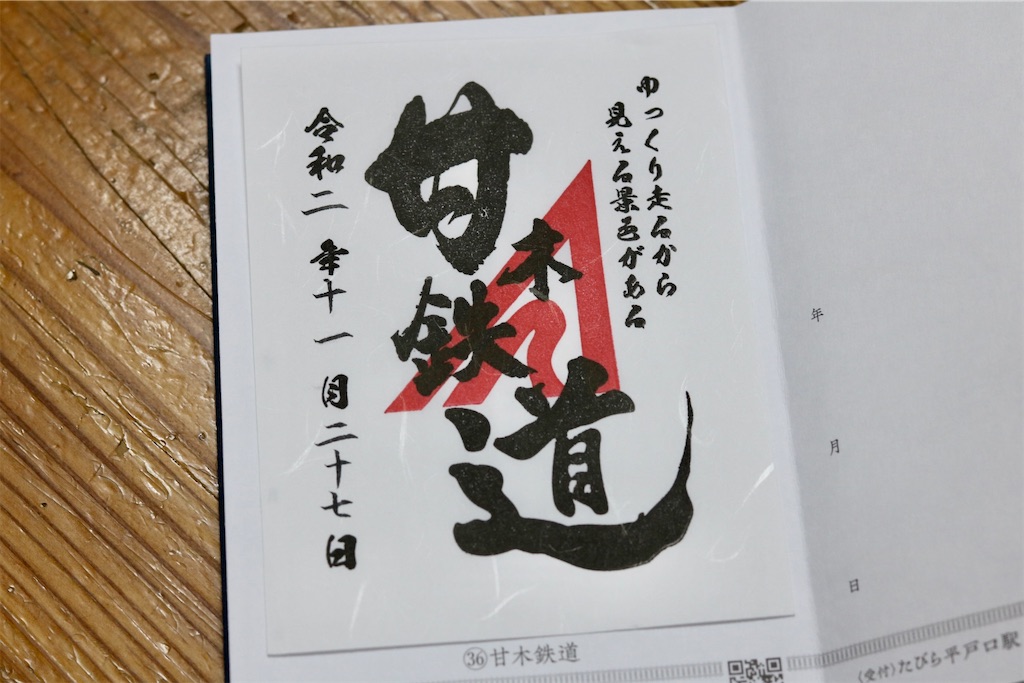 ゆっくり走るから
見える景色がある
甘木鉄道
令和二年十一月二十七日
㊱甘木鉄道
年
月
日
(受付)たびら平戸口駅